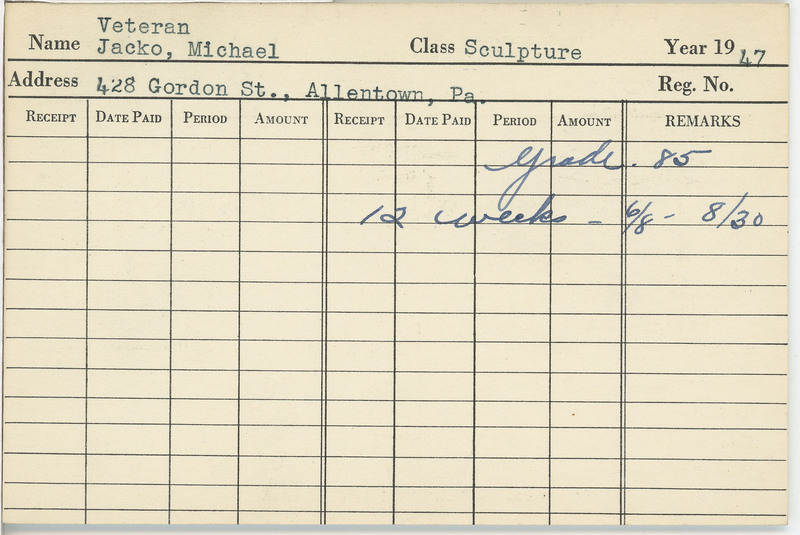 Veteran
Name Jacko, Michael Class Sculpture Year 19 47
Address 428 Gordon St., Allentown, Pa. Reg. No.
RECEIPT DATE PAID PERIOD AMOUNT RECEIPT DATE PAID PERIOD AMOUNT REMARKS
Grade. 85
12 weeks - 6/8 - 8/30